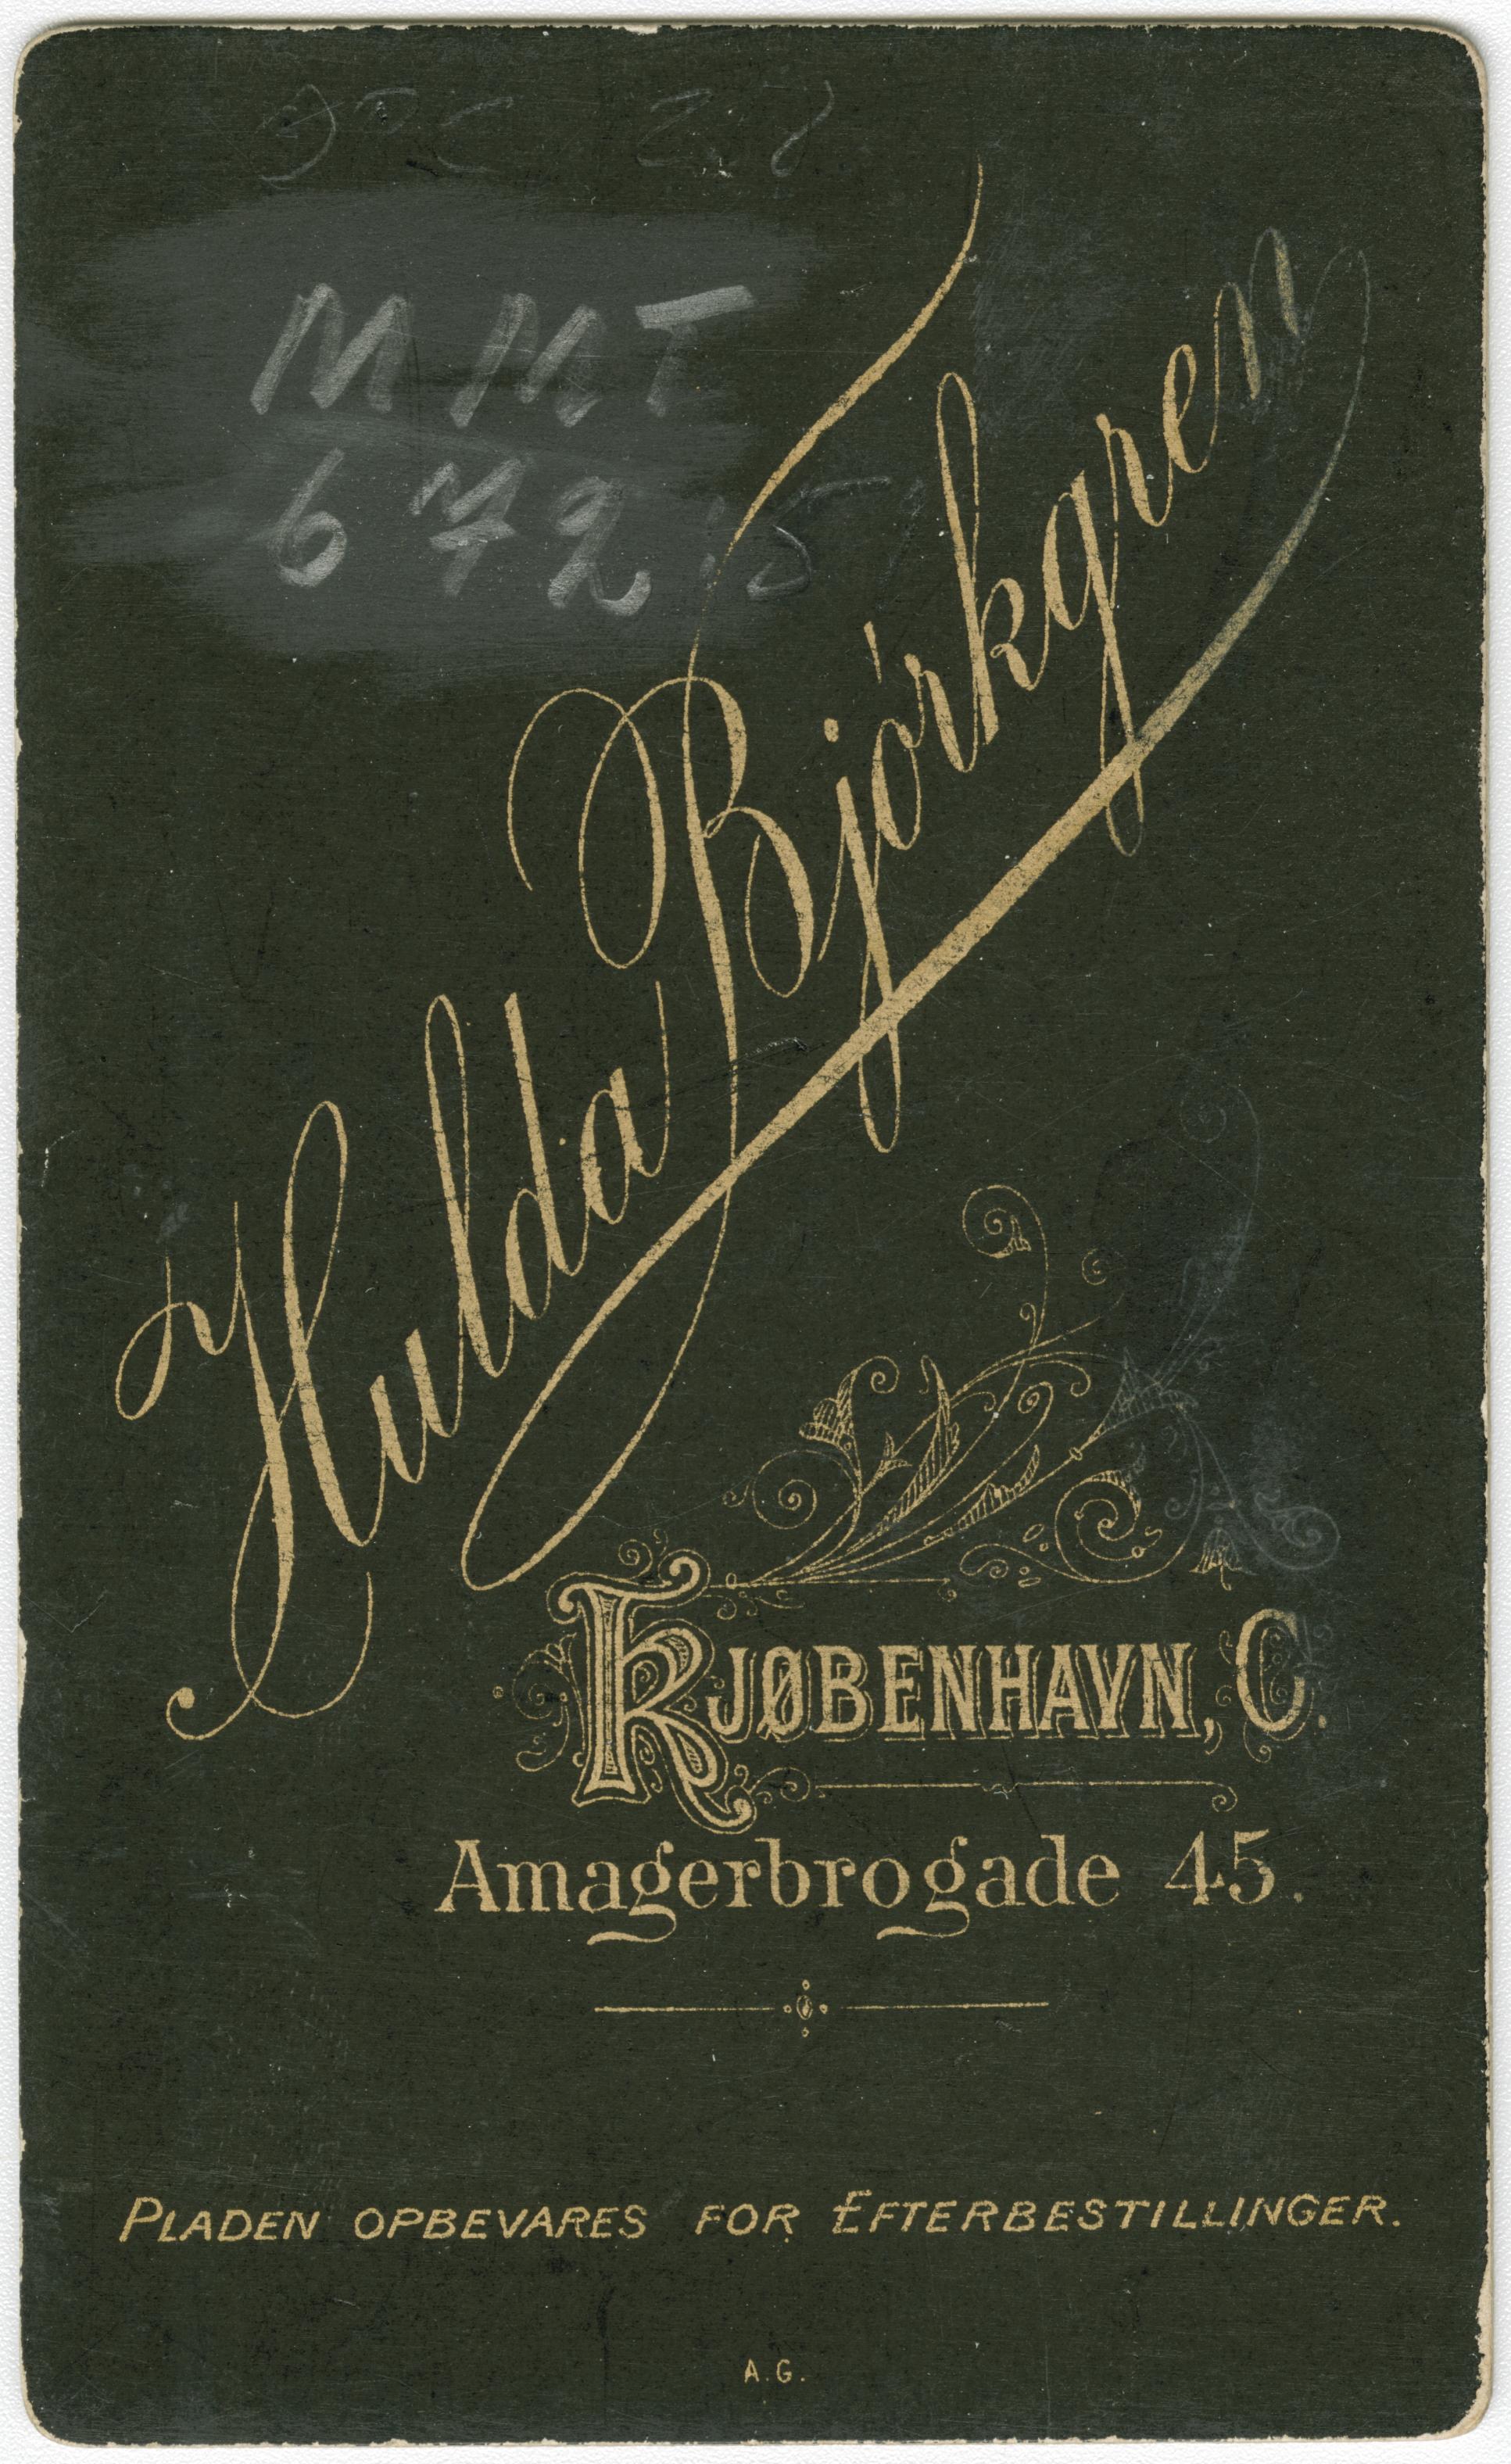 MMT
672:5
Hulda Bjórkgren
KJØBENHAVN, C.
Amagerbrogade 45.
PLADEN OPBEVARES FOR EFTERBESTILLINGER.
A.G.